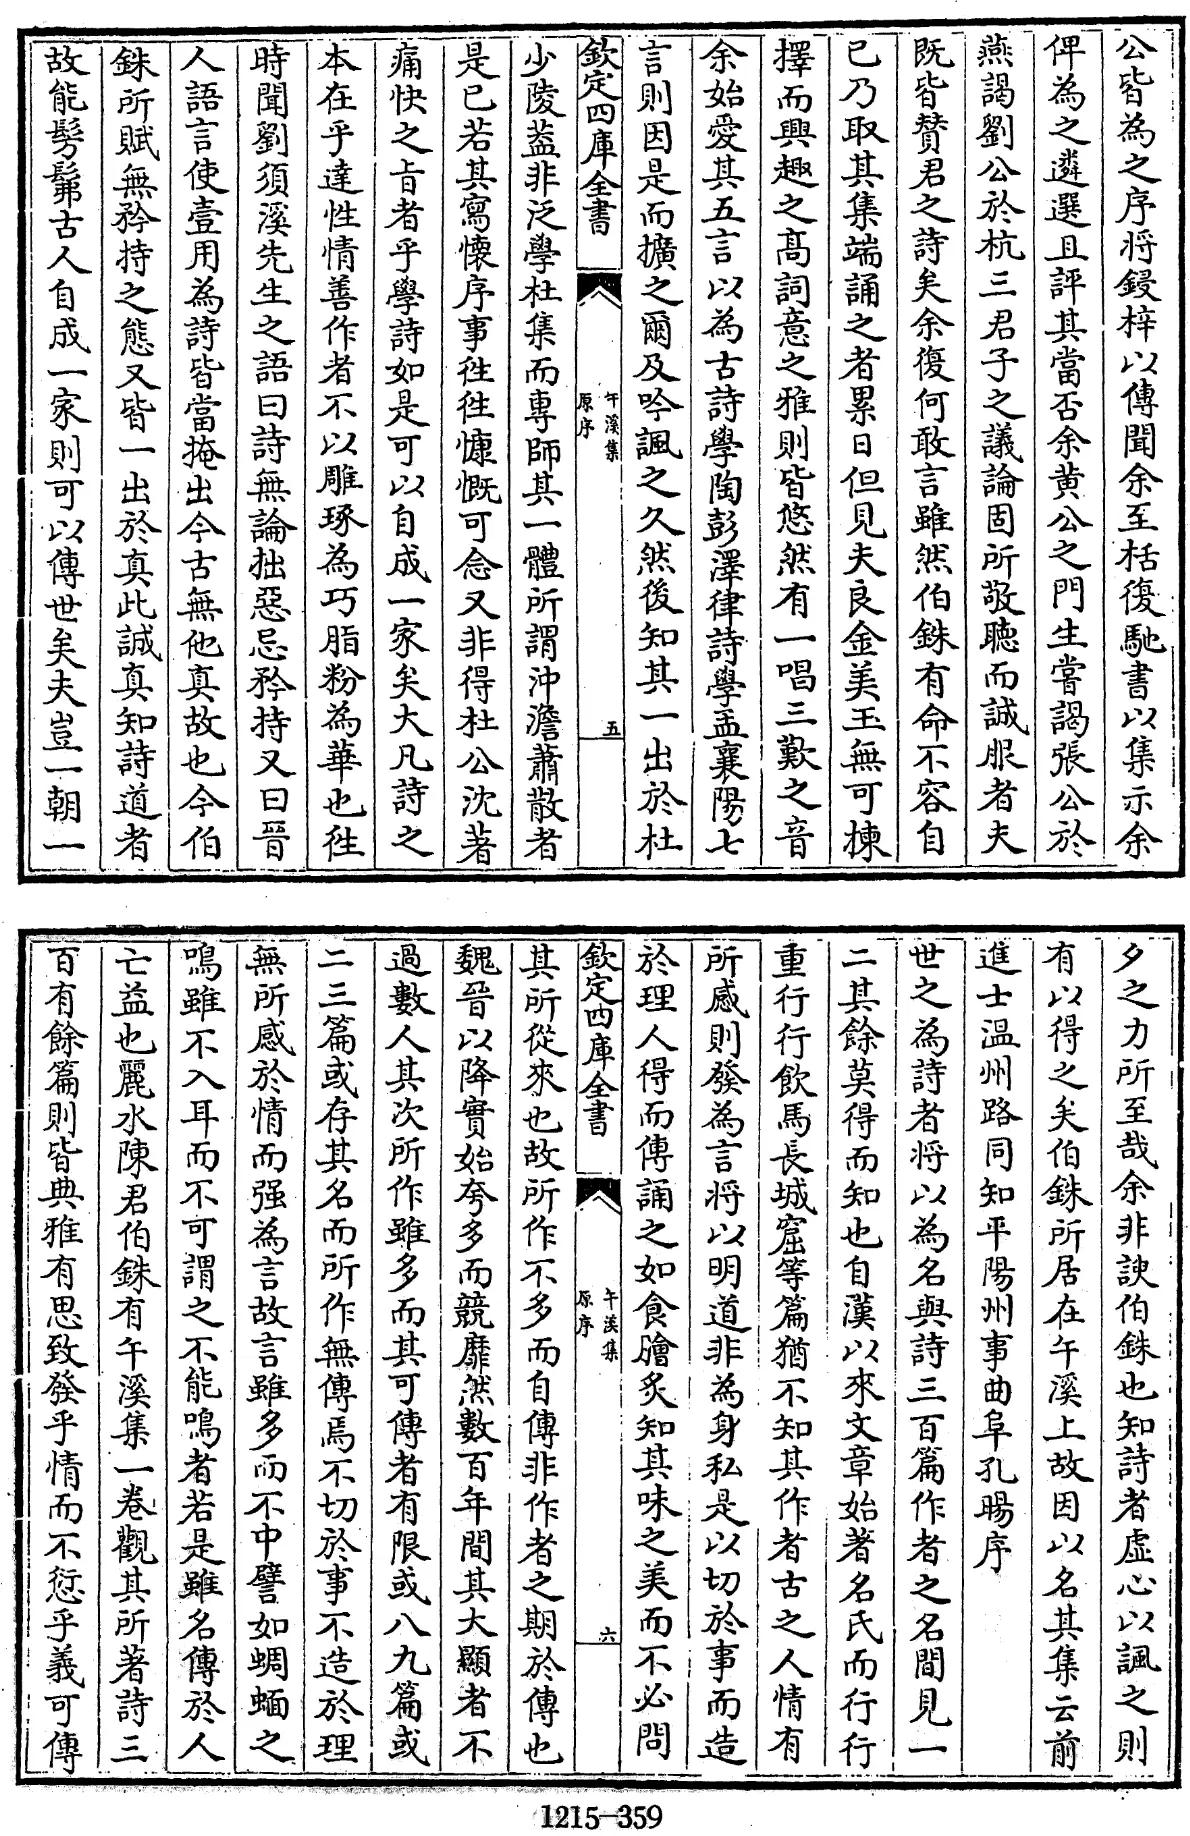 公皆為之序将鋟梓以傳聞余至栝復馳書以集示余
俾為之遴選且評其當否余黄公之門生嘗謁張公於
燕謁劉公於杭三君子之議論固所敬聴而誠服者夫
既皆賛君之詩矣余復何敢言雖然伯銖有命不容自
已乃取其集端誦之者累日但見夫良金美玉無可揀
擇而興趣之髙詞意之雅則皆悠然有一唱三歎之音
余始愛其五言以為古詩學陶彭澤律詩學孟襄陽七
言則因是而擴之爾及吟諷之久然後知其一出於杜
欽定四庫全書
午溪集
原序
五
少陵葢非泛學杜集而專師其一體所謂沖澹蕭散者
是已若其寫懷序事徃徃慷慨可念又非得杜公沈著
痛快之旨者乎學詩如是可以自成一家矣大凡詩之
本在乎達性情善作者不以雕琢為巧脂粉為華也徃
時聞劉須溪先生之語曰詩無論拙惡忌矜持又曰晉
人語言使壹用為詩皆當掩出今古無他真故也今伯
銖所賦無矜持之態又皆一出於真此誠真知詩道者
故能髣髴古人自成一家則可以傳世矣夫豈一朝一
夕之力所至哉余非諛伯銖也知詩者虚心以諷之則
有以得之矣伯銖所居在午溪上故因以名其集云前
進士温州路同知平陽州事曲阜孔暘序
世之為詩者将以為名與詩三百篇作者之名間見一
二其餘莫得而知也自漢以來文章始著名氏而行行
重行行飲馬長城窟等篇猶不知其作者古之人情有
所感則發為言将以明道非為身私是以切於事而造
於理人得而傳誦之如食膾炙知其味之美而不必問
欽定四庫全書
午溪集
原序
六
其所從來也故所作不多而自傳非作者之期於傳也
魏晉以降實始夸多而競靡然數百年間其大顯者不
過數人其次所作雖多而其可傳者有限或八九篇或
二三篇或存其名而所作無傳焉不切於事不造於理
無所感於情而强為言故言雖多而不中譬如蜩蛔之
鳴雖不入耳而不可謂之不能鳴者若是雖名傳於人
亡益也麗水陳君伯銖有午溪集一卷觀其所著詩三
百有餘篇則皆典雅有思致發乎情而不愆乎義可傳
1215-359